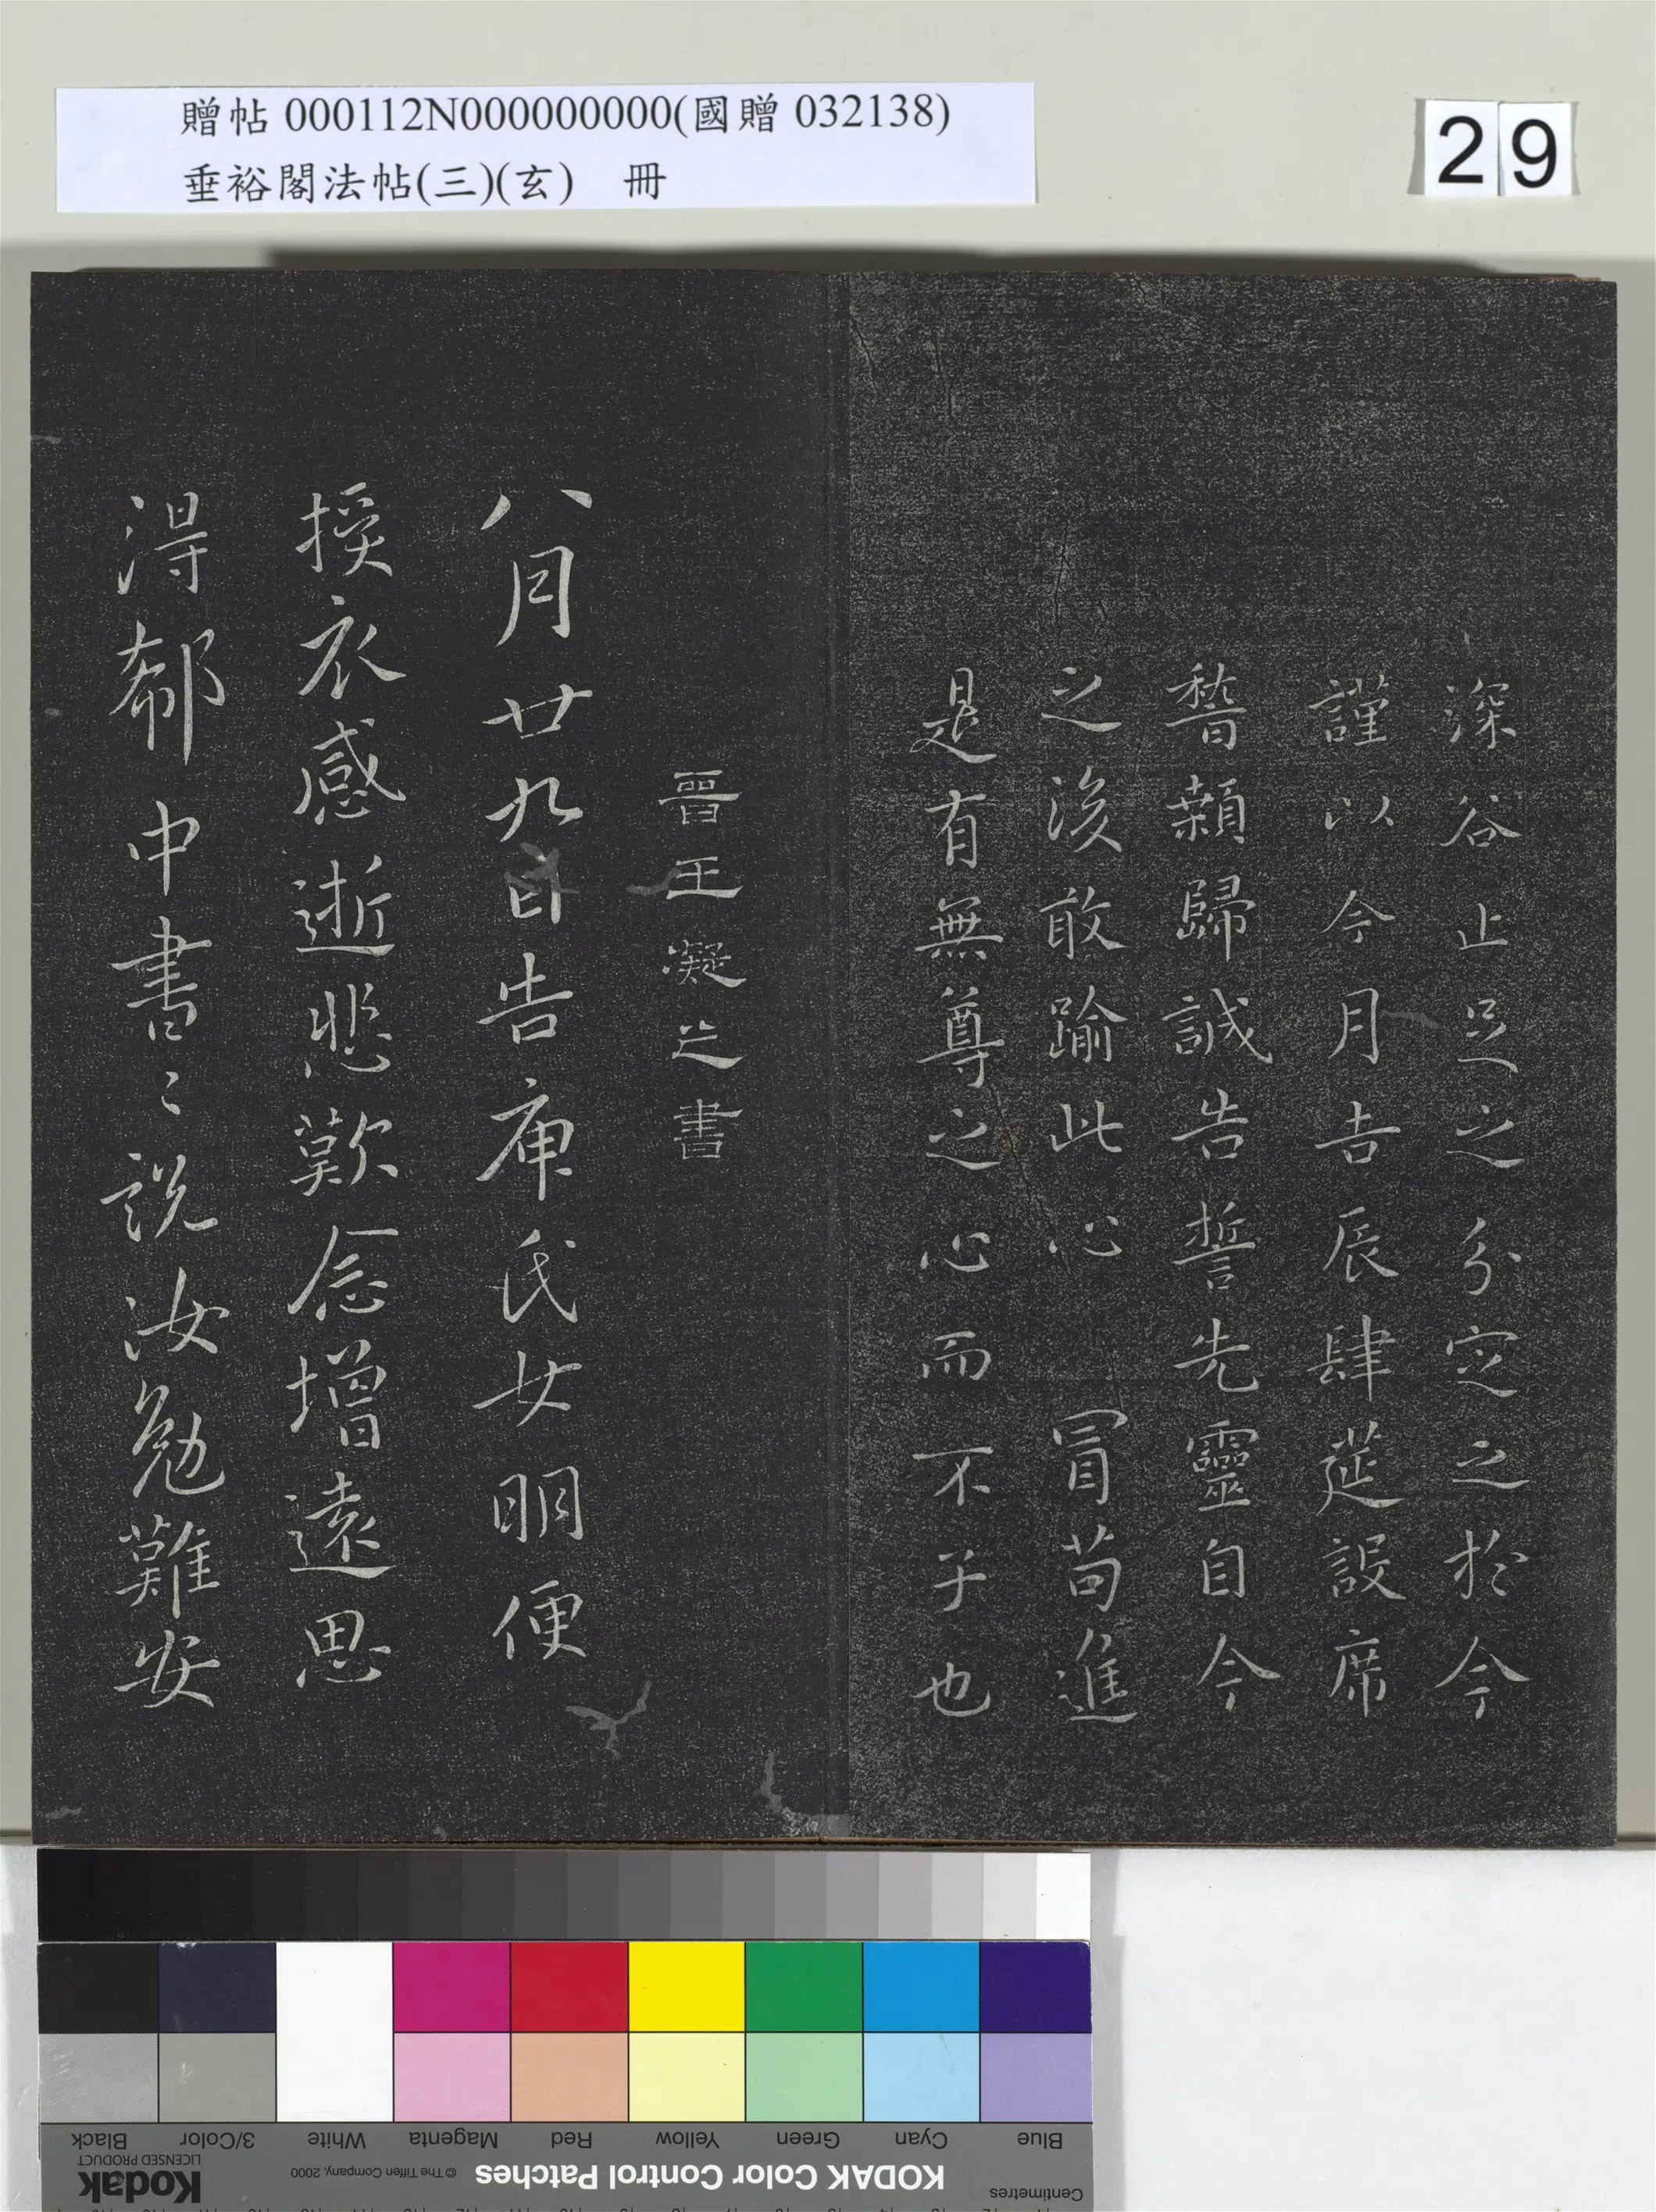 贈帖 000112N000000000(國贈 032138)
垂裕閣法帖(三)(玄) 冊
29
深谷止足之分定之於今
謹以今月吉辰肆莚設席
稽顙歸誠告誓先靈自今
之後敢踰此心 冒苟進
是有無尊之心而不子也
晉王凝之書
八月廿九日告庾氏女明便
授衣感逝悲歎念增遠思
得郗中書〻說汝勉難安
Blue
Cyan
Green
Yellow
Red
Magenta
White
3/Color
Black
Centimetres
KODAK Color Control Patches
© The Tiffen Company, 2000
Kodak
LICENSED PRODUCT